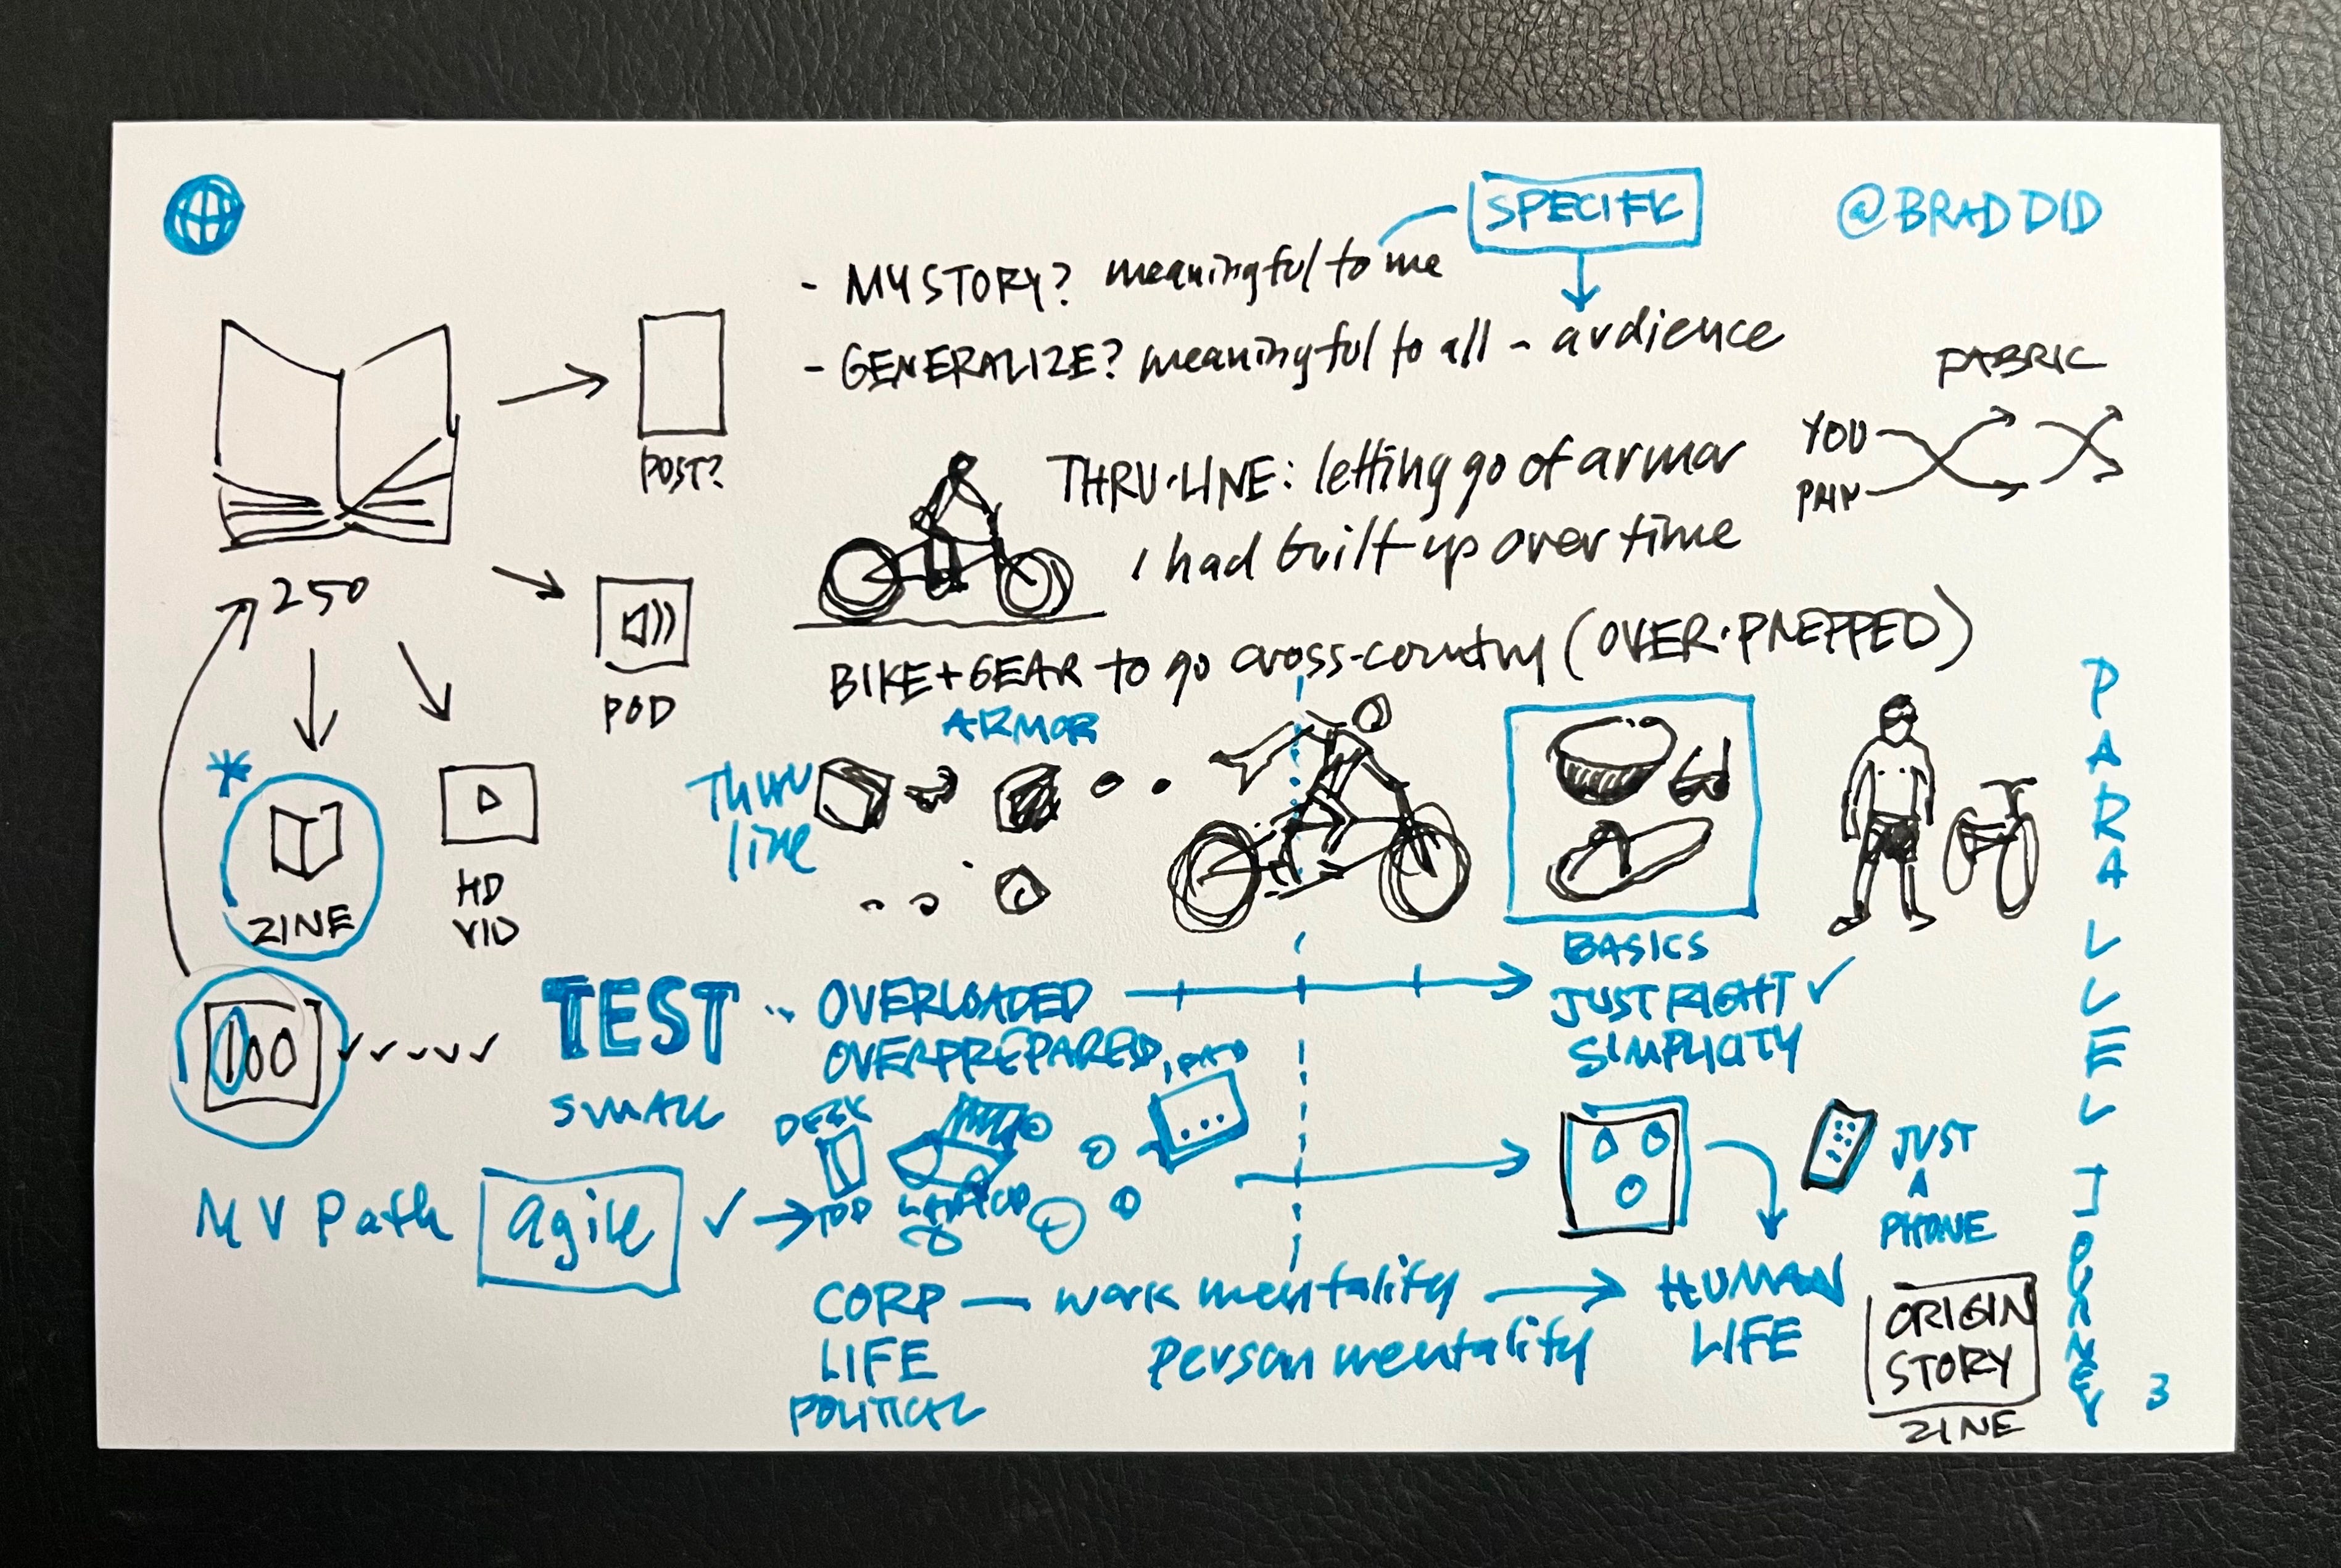 SPECIFIC
@BRADDID
- MY STORY? meaningful to me
- GENERALIZE? meaningful to all - audience
FABRIC
YOU
PAIN
POST?
THRU•LINE: letting go of armor
I had built-up over time
250
POD
BIKE+GEAR to go cross-country (OVER•PREPPED)
ARMOR
THRU
line
HD
VID
ZINE
BASICS
100
TEST
SMALL
OVERLOADED
OVERPREPARED
JUST RIGHT ✓
SIMPLICITY
DESK
TOP
LAPTOP
IPAD
JUST
A
PHONE
MV Path agile ✓
CORP — work mentality
LIFE person mentality
POLITICAL
HUMAN
LIFE
ORIGIN
STORY
ZINE
PARALLEL JOURNEY
3